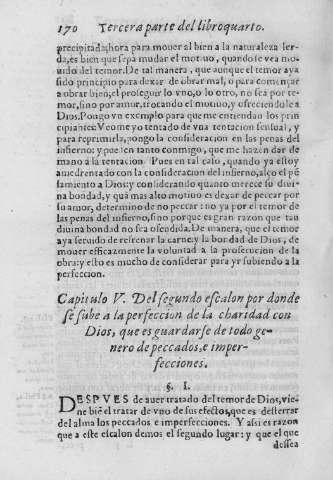 170 Tercera parte del libro quarto.
precipitada; hora para mouer al bien a la naturaleza ler-
da, es bien que sepa mudar el motiuo, quando se vea mo-
uido del temor. De tal manera, que aunque el temor aya
sido principio para dexar de obrar mal, o para començar
a obrar bien, el proseguir lo vno, o lo otro, no sea por te-
mor, sino por amor, trocando el motiuo, y ofreciendole a
Dios. Pongo vn exemplo para que me entiendan los prin
cipiantes: Veome yo tentado de vna tentacion sensual, y
para reprimirla, pongo la consideracion en las penas del
infierno: y pueden tanto conmigo, que me hazen dar de
mano a la tentacion Pues en tal caso, quando ya estoy
amedrentado con la consideracion del infierno, alço el pē
samiento a Dios: y considerando quanto merece su diui-
na bondad, y quā mas alto motiuo es dexar de peccar por
su amor, determino de no peccar: no ya por el temor de
las penas del infierno, sino porque es gran razon que tan
diuina bondad no sea ofendida. De manera, que el temor
aya seruido de refrenar la carne: y la bondad de Dios, de
mouer eficazmente la voluntad a la prosecucion de la
obra: y esto es mucho de considerar para yr subiendo a la
perfeccion.
Capitulo V. Del segundo escalon por donde
se sube a la perfeccion de la charidad con
Dios, que es guardarse de todo ge-
nero de peccados, e imper-
fecciones.
§. I.
DESPVES de auer tratado del temor de Dios, vie-
ne biē el tratar de vno de sus efectos, que es desterrar
del alma los peccados e imperfecciones. Y assi es razon
que a este escalon demos el segundo lugar: y que el que
dessea